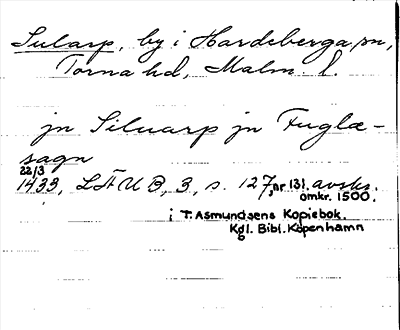 Sularp, by i Hardeberga sn,
Torna hd, Malm. l.
jn Siluarp jn Fuglæ-
sagn
22/3
1433, LÄU B, 3, s. 127, nr 131. avskr.
omkr. 1500.
i T. Asmundsens Kopiebok.
Kgl. Bibl. Köpenhamn